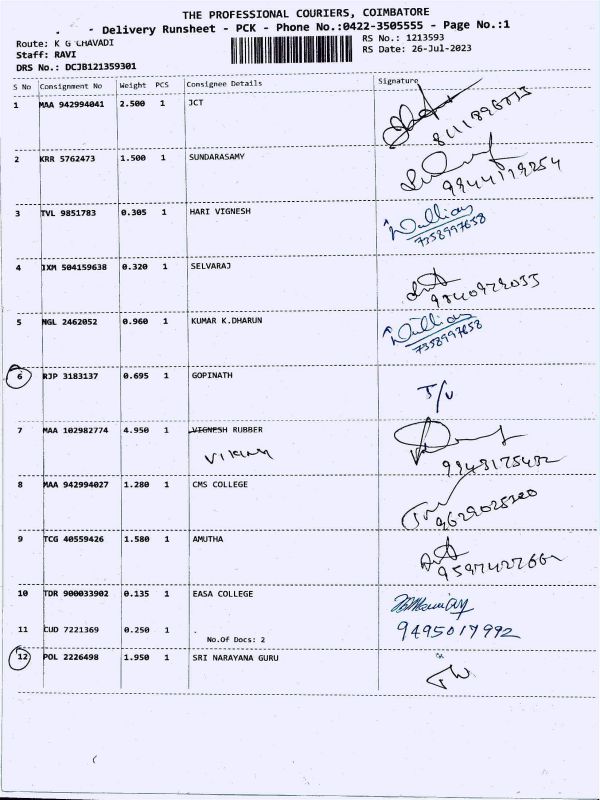 THE PROFESSIONAL COURIERS, COIMBATORE
- Delivery Runsheet - PCK - Phone No.:0422-3505555 - Page No.:1
Route: K G CHAVADI
RS No.: 1213593
Staff: RAVI
RS Date: 26-Jul-2023
DRS No.: DCJB121359301
S No Consignment No Weight PCS Consignee Details Signature
1 MAA 942994041 2.500 1 JCT
2 KRR 5762473 1.500 1 SUNDARASAMY
9944119254
3 TVL 9851783 0.305 1 HARI VIGNESH
William
7358997658
4 IXM 504159638 0.320 1 SELVARAJ
5 NGL 2462052 0.960 1 KUMAR K.DHARUN
William
7358997658
6 RJP 3183137 0.695 1 GOPINATH
7 MAA 102982774 4.950 1 VIGNESH RUBBER
8 MAA 942994027 1.280 1 CMS COLLEGE
9 TCG 40559426 1.580 1 AMUTHA
10 TDR 900033902 0.135 1 EASA COLLEGE
11 CUD 7221369 0.250 1
9495017992
No.Of Docs: 2
12 POL 2226498 1.950 1 SRI NARAYANA GURU